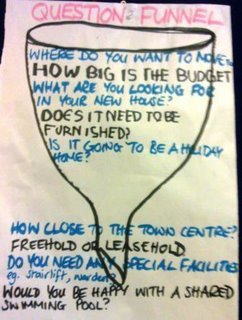 QUESTION FUNNEL
WHERE DO YOU WANT TO MOVE TO
HOW BIG IS THE BUDGET
WHAT ARE YOU LOOKING FOR
IN YOUR NEW HOUSE?
DOES IT NEED TO BE
FURNISHED?
IS IT GOING TO BE A HOLIDAY
HOME?
HOW CLOSE TO THE TOWN CENTRE?
FREEHOLD OR LEASEHOLD
DO YOU NEED ANY SPECIAL FACILITIES
eg. stairlift, warden?
WOULD YOU BE HAPPY WITH A SHARED
SWIMMING POOL?